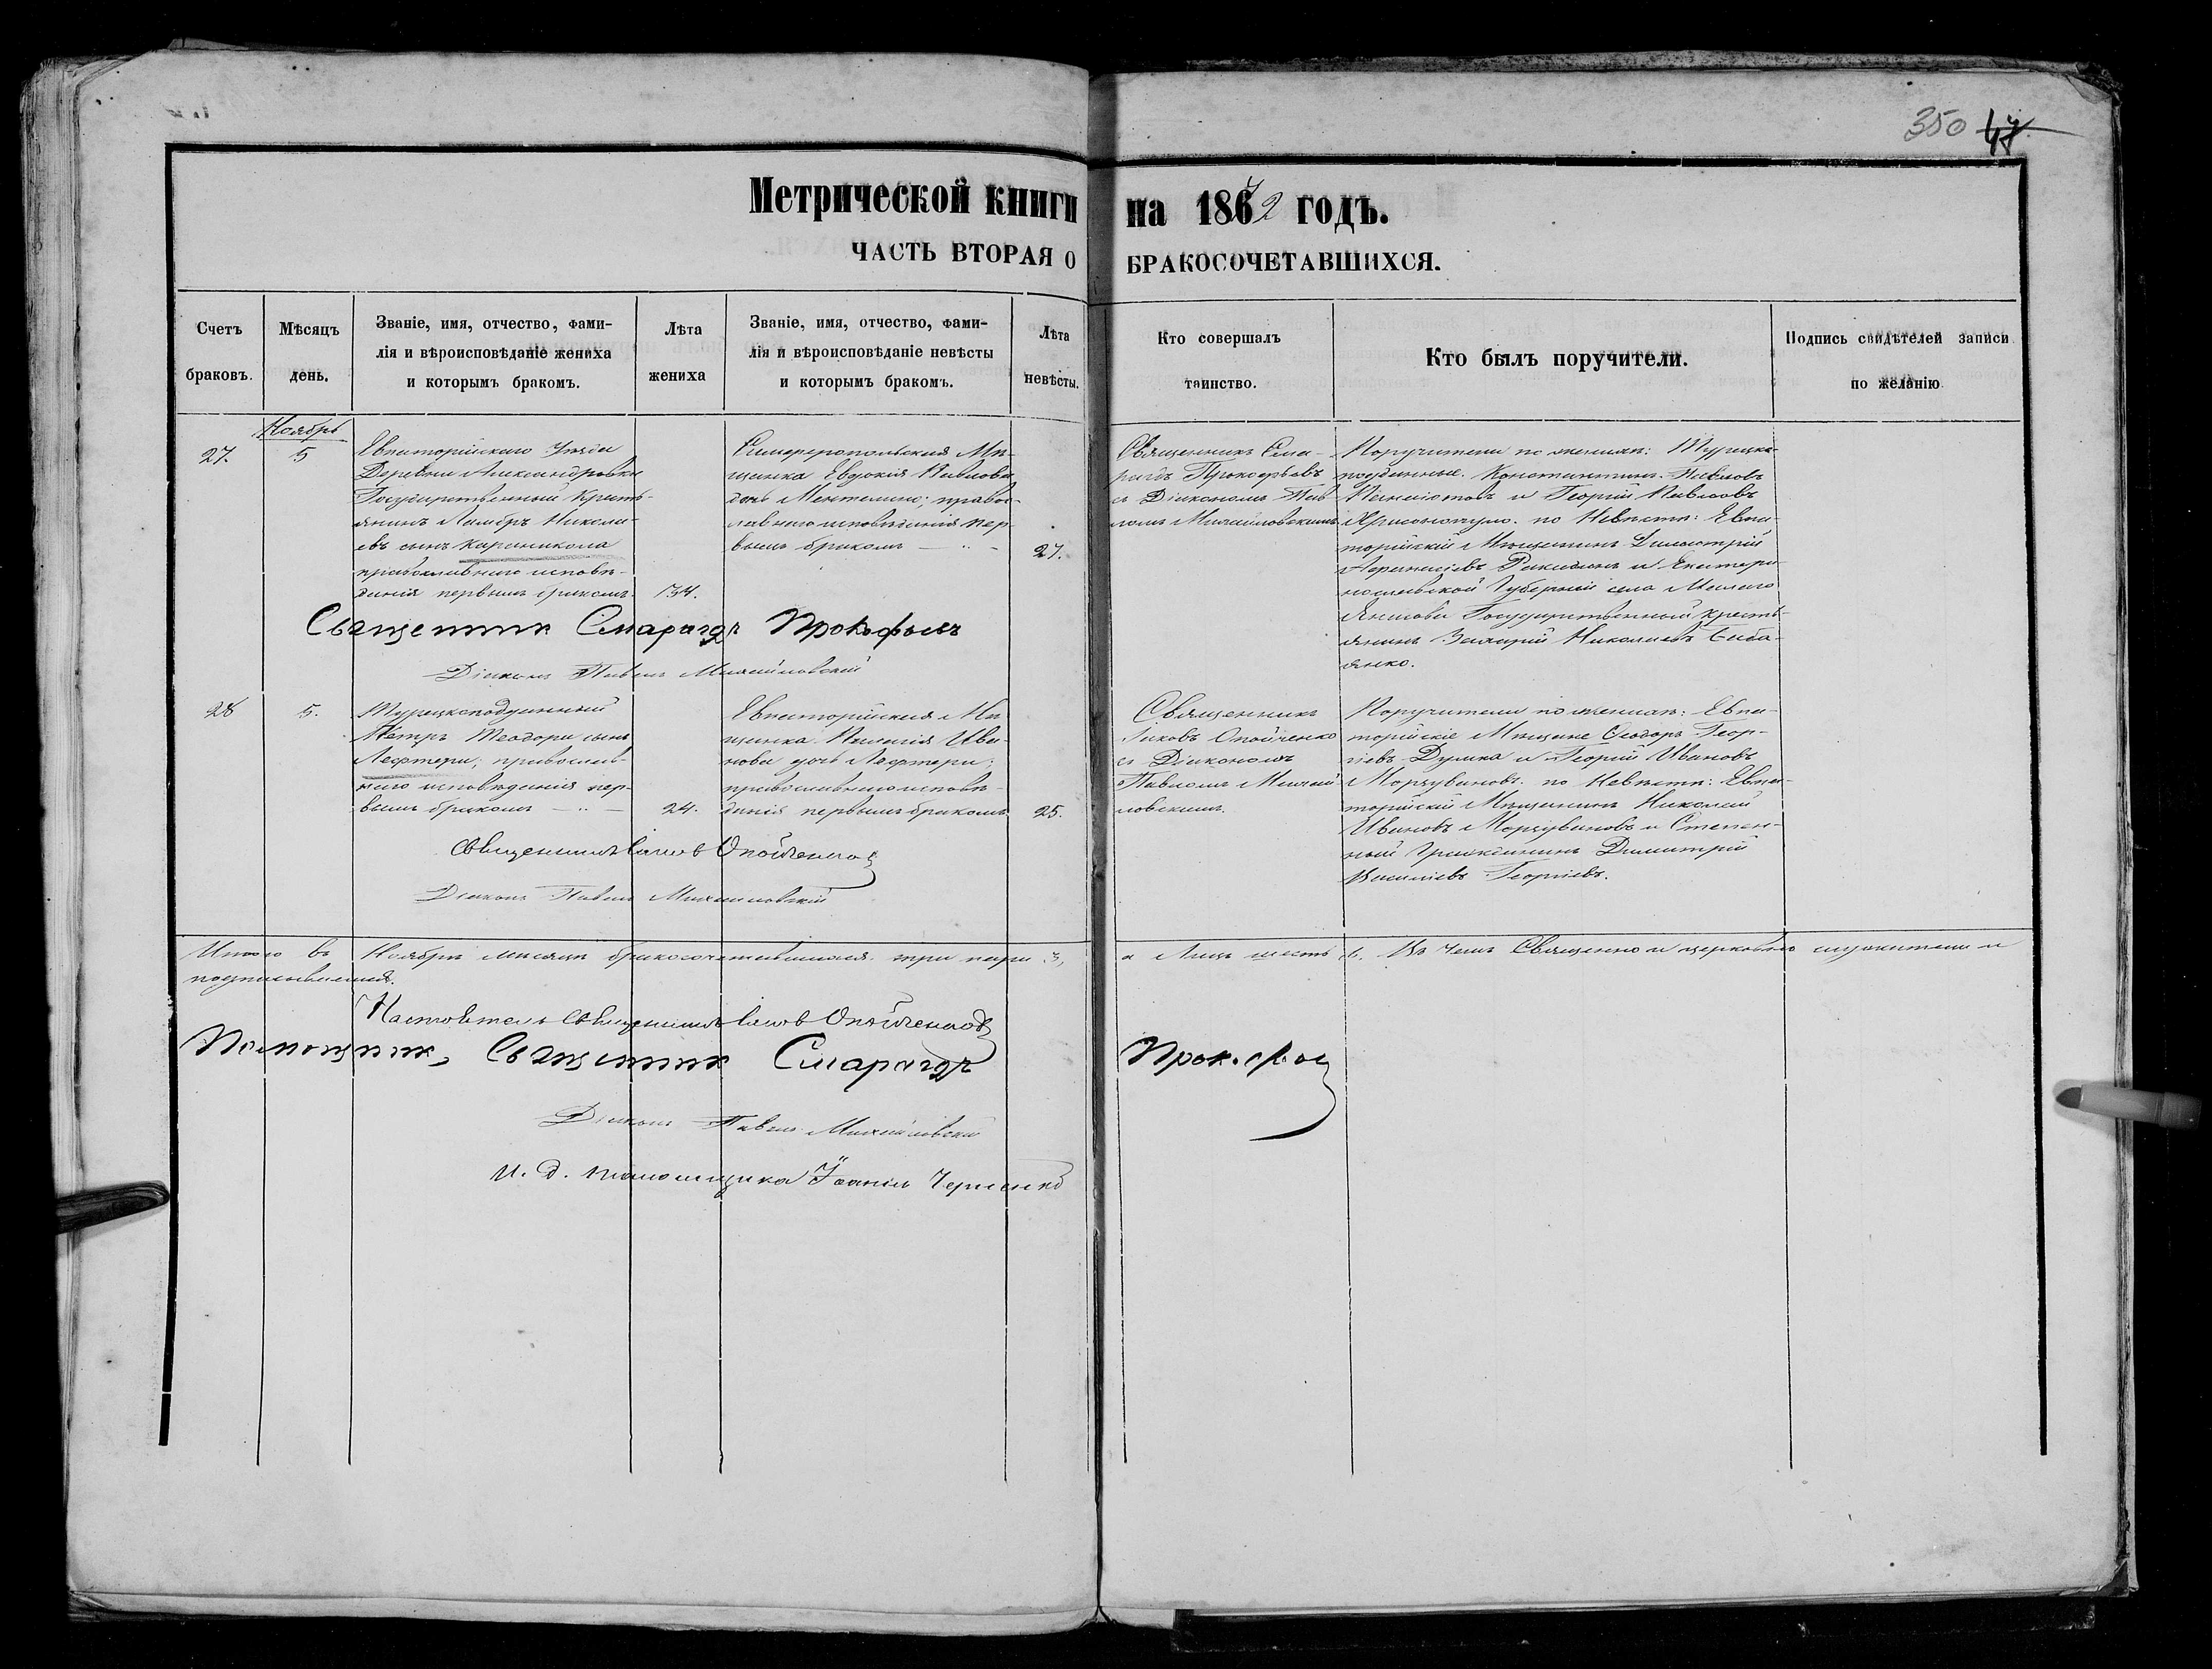 350 47
Метрической книги на 1872 годъ.
ЧАСТЬ ВТОРАЯ О БРАКОСОЧЕТАВШИХСЯ.
Счетъ
браковъ.
Мѣсяцъ
день.
Званіе, имя, отчество, фами-
лія и вѣроисповѣданіе жениха
и которымъ бракомъ.
Лѣта
жениха
Званіе, имя, отчество, фами-
лія и вѣроисповѣданіе невѣсты
и которымъ бракомъ.
Лѣта
невѣсты.
Кто совершалъ
таинство.
Кто былъ поручители.
Подпись свидѣтелей записи
по желанію
Ноябрь
27.
5
Евпаторійскаго Уѣзда
Деревни Александровки
Государственный Кресть-
янинъ Ламбръ Никола-
евъ сынъ Караникола
православнаго исповѣ-
данія первымъ бракомъ.
34.
Симферопольская Мѣ-
щанка Евдокія Павлова
дочь Ментелино; правос-
лавнаго исповѣданія пер-
вымъ бракомъ
27.
Священникъ Сма-
рагдъ Прокофьевъ
съ Діакономъ Пав-
ломъ Михайловскимъ
Поручители по женихѣ: Турецко-
подданные Константинъ Павловъ
и Георгій Павловъ
по Невѣстѣ: Евпа-
торійскій Мѣщанинъ Димитрій
и Екатери-
нославской Губерніи села Малаго
Янисоля Государственный Кресть-
янинъ Захарій Николаевъ
Священникъ Смарагдъ Прокофьевъ
Діаконъ Павелъ Михайловскій
28
5.
Турецкоподданный
Петръ Теодори сынъ
Лефтери; православ-
наго исповѣданія пер-
вымъ бракомъ
24.
Евпаторійская Мѣ-
щанка Ива-
нова дочь Лефтери;
православнаго исповѣ-
данія первымъ бракомъ
25.
Священникъ
Іаковъ Опойченко
съ Діакономъ
Павломъ Михай-
ловскимъ.
Поручители по женихѣ: Евпа-
торійскіе Мѣщане Ѳеодоръ Геор-
гіевъ Думка и Георгій Ивановъ
Морзувановъ. по Невѣстѣ: Евпа-
торійскій Мѣщанинъ Николай
Ивановъ Морзувановъ и Степен-
ный Гражданинъ Димитрій
Василіевъ Георгіевъ.
Священникъ Іаковъ Опойченко
Діаконъ Павелъ Михайловскій
Итого въ Ноябрѣ мѣсяцѣ бракосочетавшихся три пары 3, а Лицъ шесть 6. Въ чемъ Священно и церковно служители и
подписываемся.
Настоятель Священникъ Іаковъ Опойченко
Помощникъ, Священникъ Смарагдъ Прокофьев
Діаконъ Павелъ Михайловскій
И. д. Псаломщика Іоаннъ Черненко